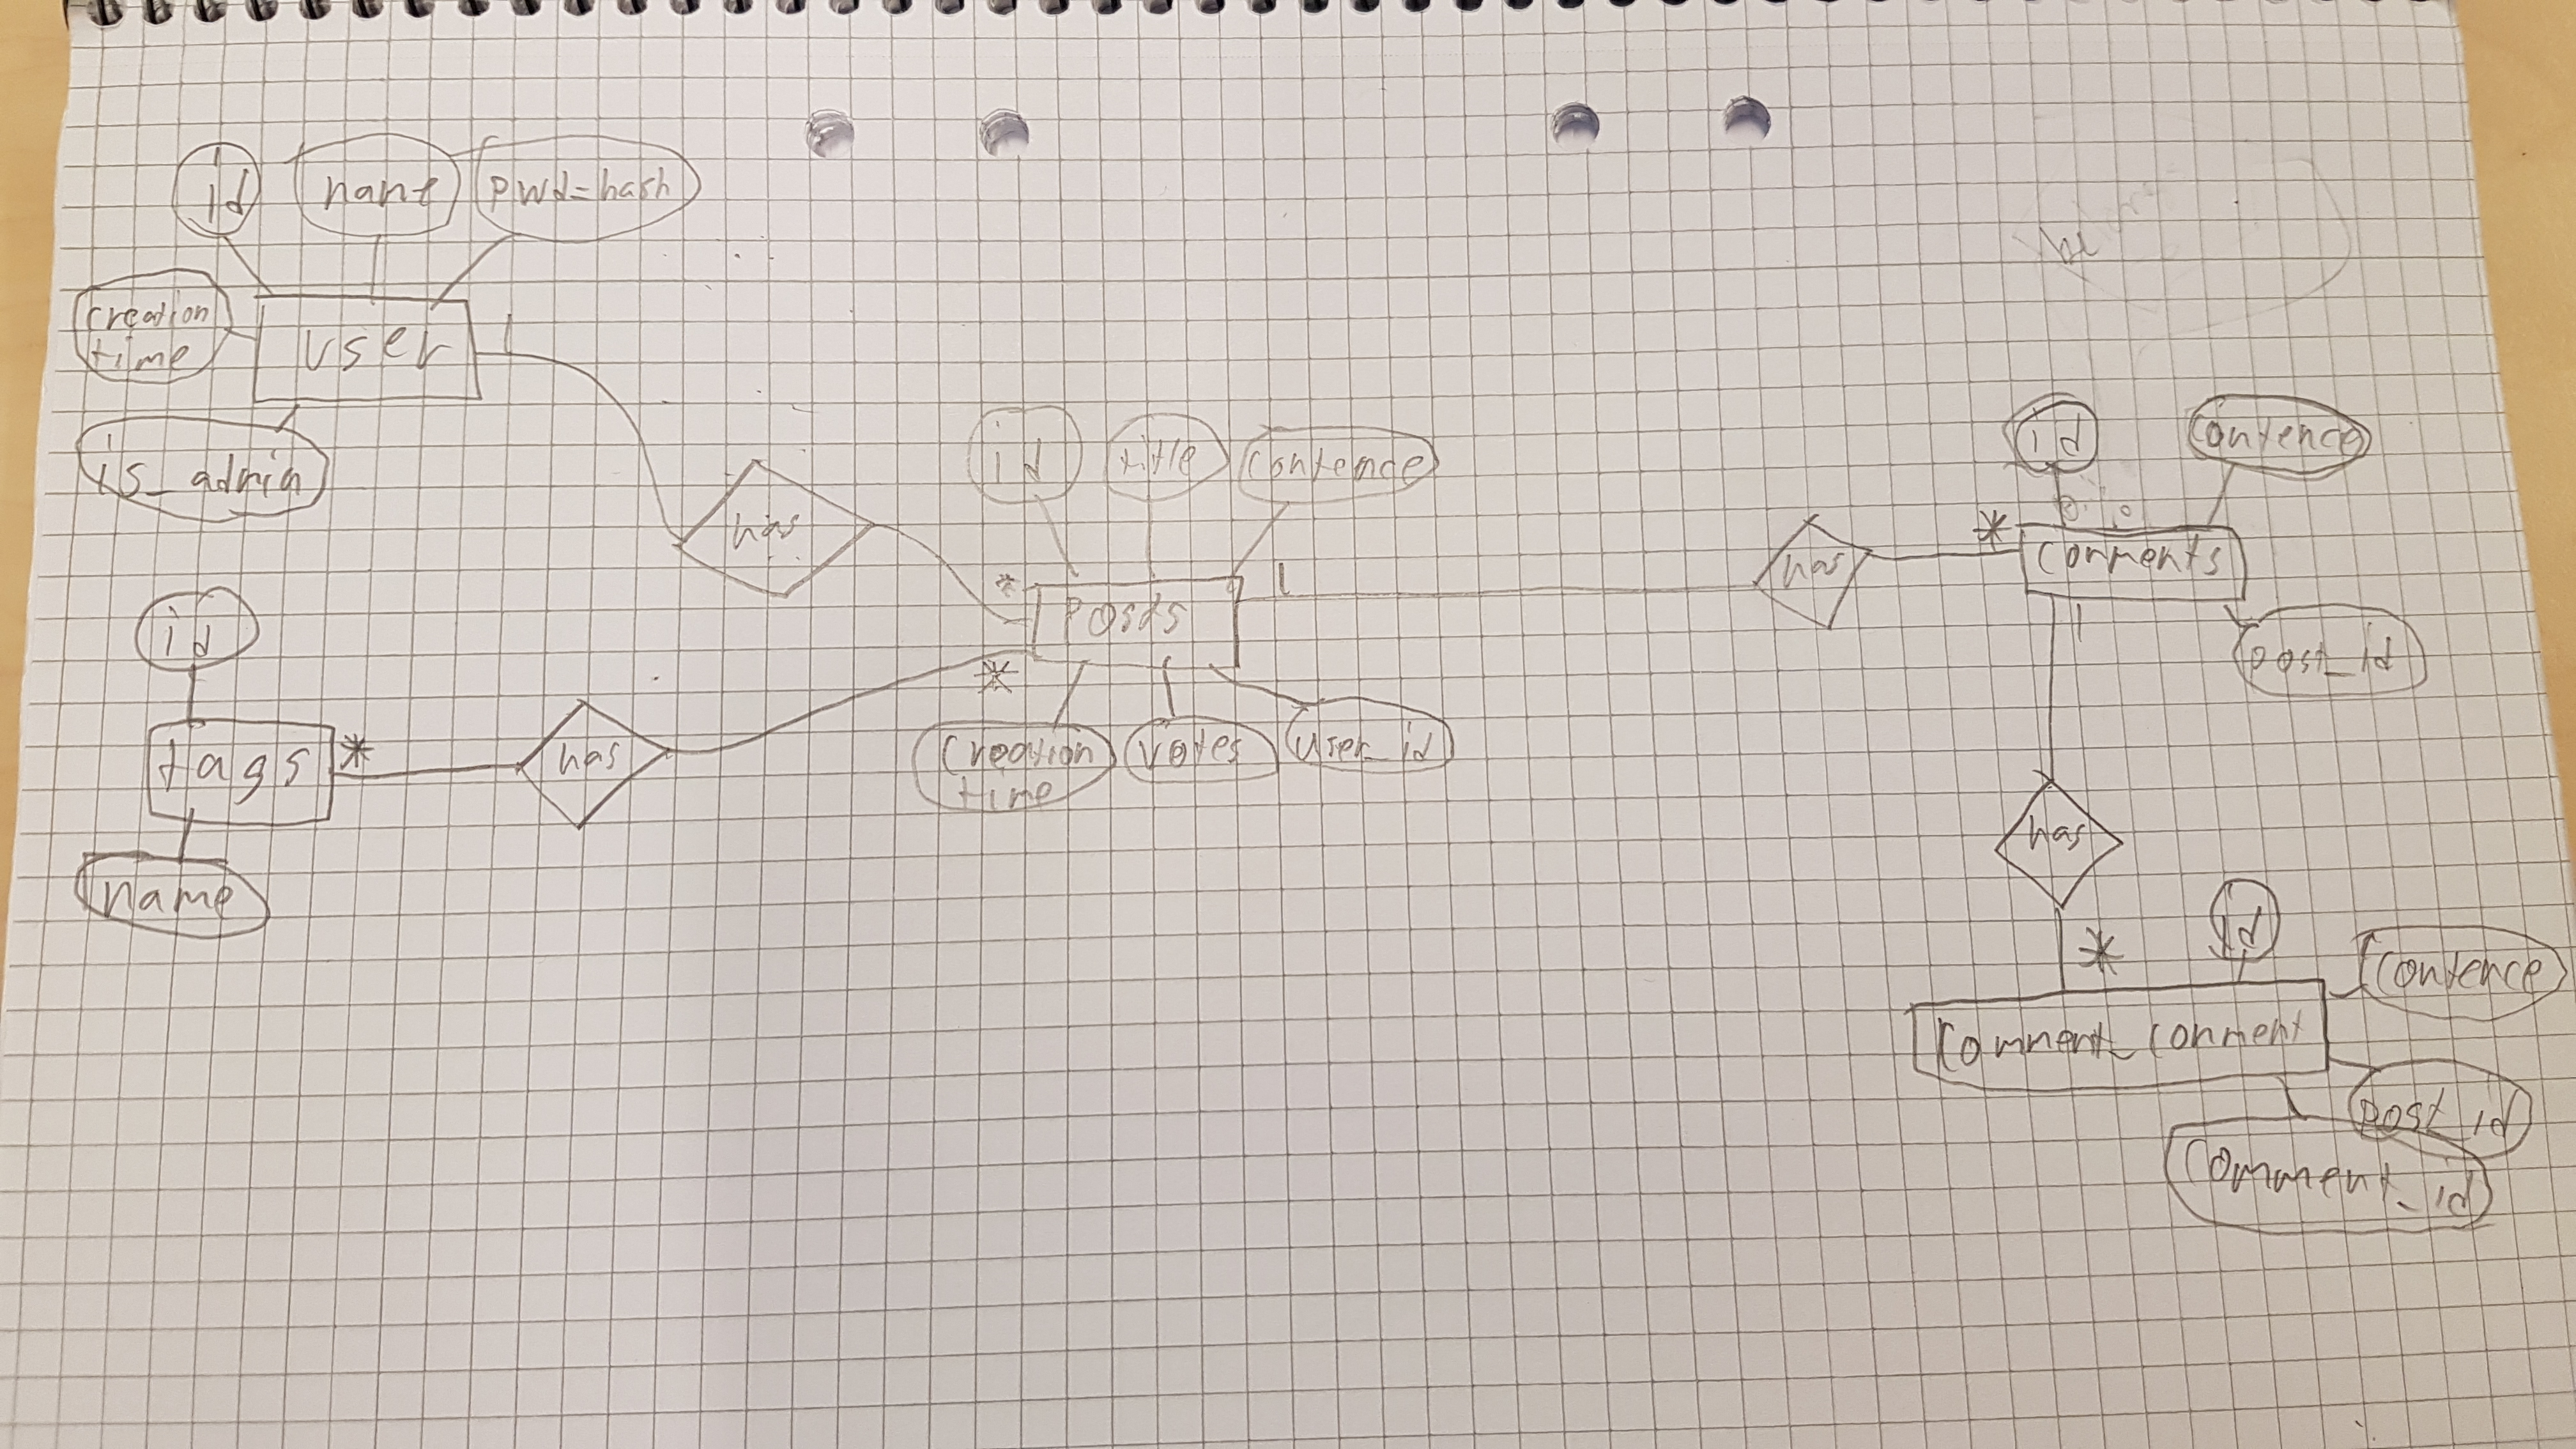 id
name
pwd=hash
creation
time
user
1
is_admin
has
id
title
contence
*
Posts
1
*
creation
time
votes
user_id
id
tags
*
has
name
has
*
id
contence
comments
1
post_id
has
*
id
contence
comment_comment
post_id
comment_id